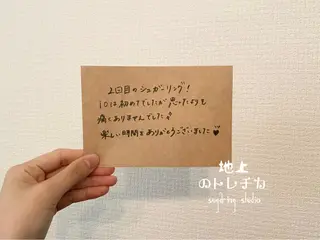 2回目のシュガーリング!
IOは初めてでしたが思ったよりも
痛くありませんでした
楽しい時間をありがとうございました♥
地上
のトレチカ
sugaring studio